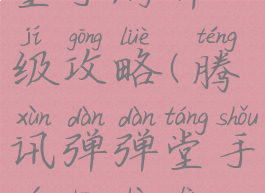 jí gōng lüè téng
级攻略(腾
xùn dàn dàn táng shǒu
讯弹弹堂手